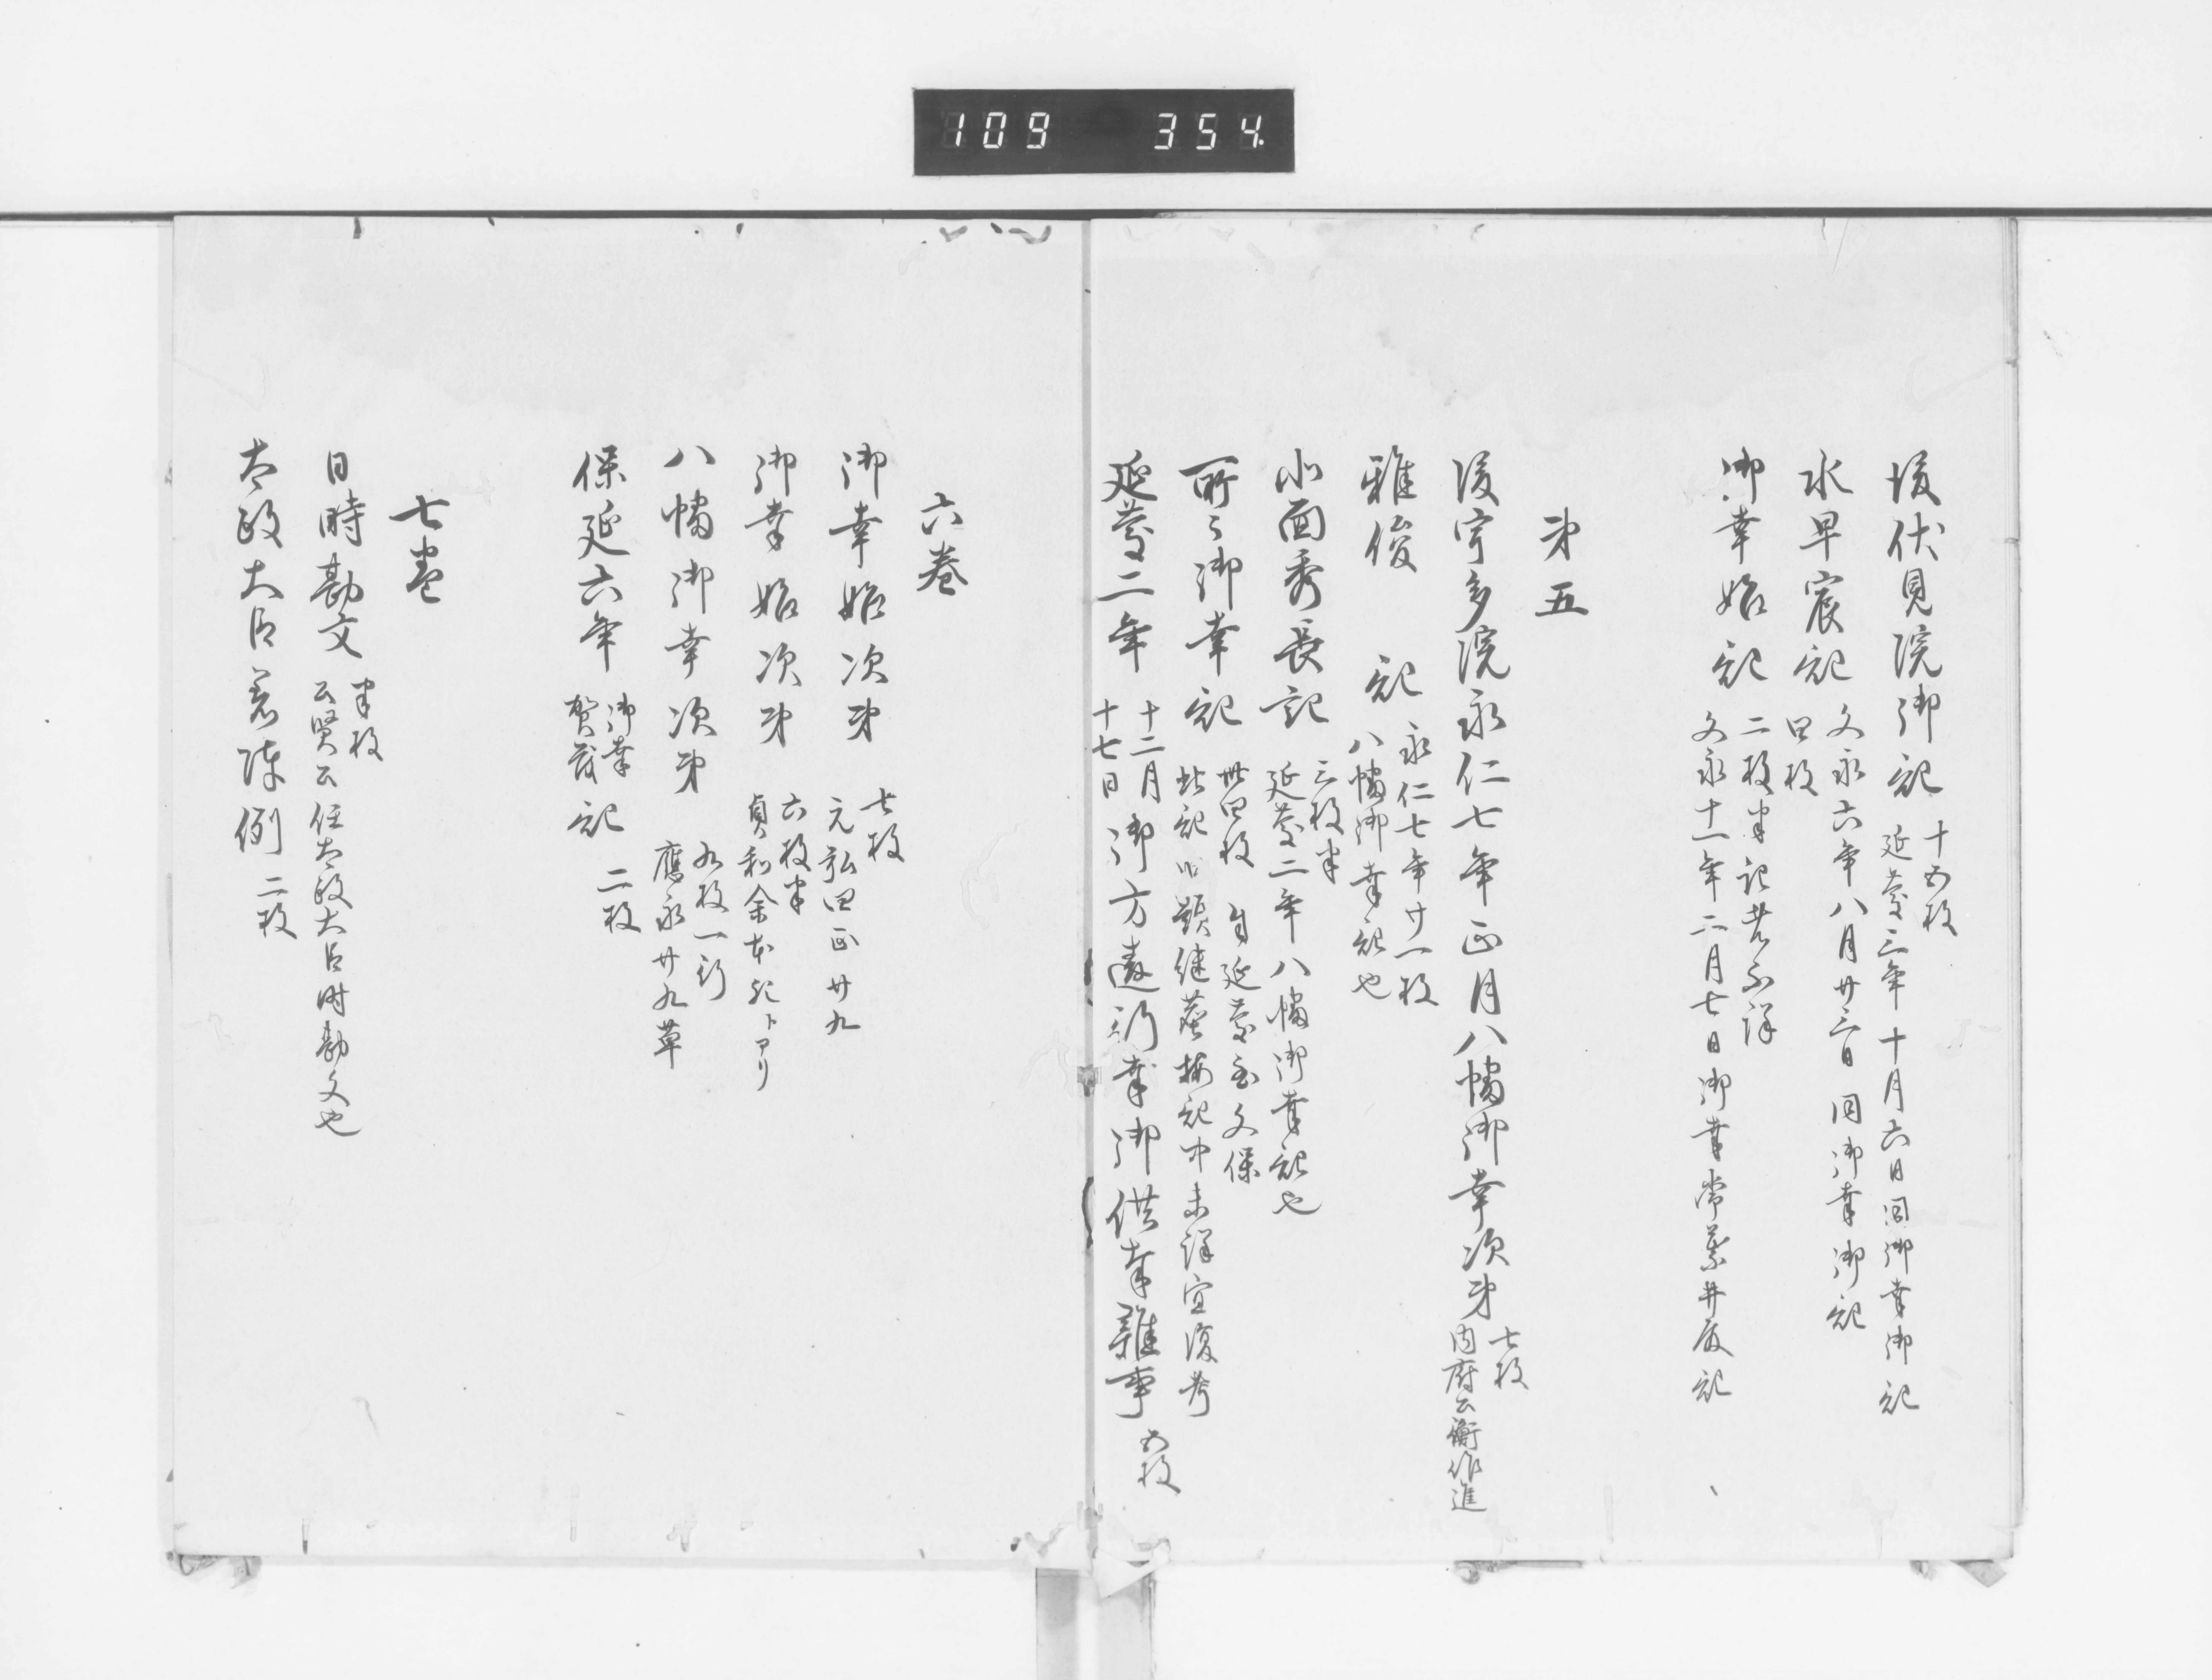 109 354.
後伏見院御記 十五枚
延慶三年十月六日同御幸御記
水早宸記 文永六年八月廿三日同御幸御記
口枚
御幸始記 二枚半記者不詳
文永十一年二月七日御幸常葉井殿記
第五
後宇多院永仁七年正月八幡御幸次第 七枚
内府公衡作進
雅俊記 永仁七年廿一枚
八幡御幸記也
北面秀長記 三枚半
延慶二年八幡御幸記也
所々御幸記 卅四枚 自延慶至文保
此記旧題継塵摸記中未詳宜復考
延慶二年 十二月
十七日 御方違行幸御供奉雑事 五枚
六巻
御幸始次第 七枚
元弘四正廿九
御幸始次第 六枚半
貞和余本死トアリ
八幡御幸次第 九枚一行
應永廿九草
保延六年 御幸
賀茂 記 二枚
七巻
日時勘文 半枚
公賢公任太政大臣時勘文也
太政大臣着陣例 二枚